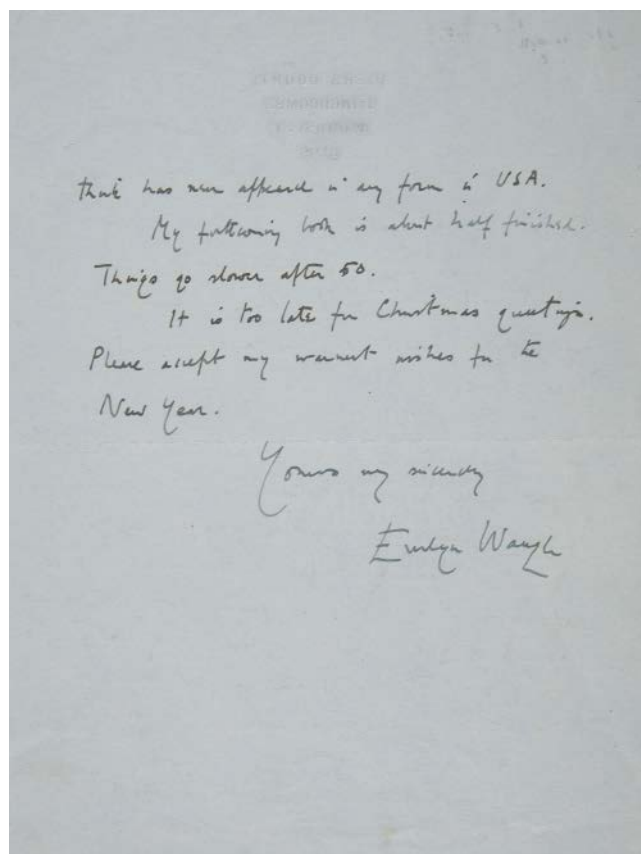 think has never appeared in any form in USA.
My forthcoming book is about half finished.
Things go slower after 50.
It is too late for Christmas greetings.
Please accept my warmest wishes for the
New Year.
Yours very sincerely
Evelyn Waugh